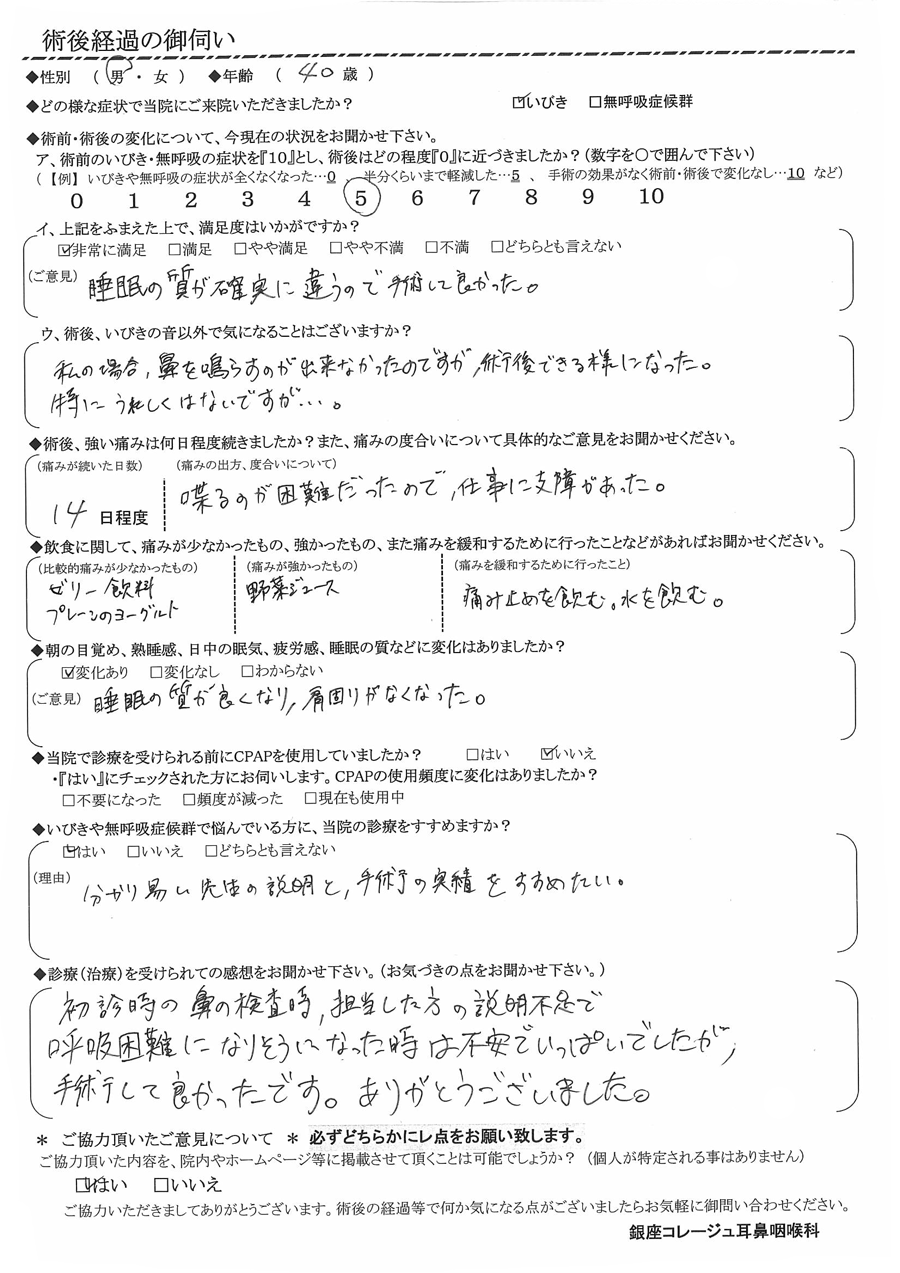 術後経過の御伺い
◆性別 ( 男 ・ 女 ) ◆年齢 ( 40 歳 )
◆どの様な症状で当院にご来院いただきましたか? ☑いびき □無呼吸症候群
◆術前・術後の変化について、今現在の状況をお聞かせ下さい。
ア、術前のいびき・無呼吸の症状を『10』とし、術後はどの程度『0』に近づきましたか?(数字を〇で囲んで下さい)
(【例】いびきや無呼吸の症状が全くなくなった…0 、 半分くらいまで軽減した…5 、 手術の効果がなく術前・術後で変化なし…10 など)
0 1 2 3 4 5 6 7 8 9 10
イ、上記をふまえた上で、満足度はいかがですか?
☑非常に満足 □満足 □やや満足 □やや不満 □不満 □どちらとも言えない
(ご意見) 睡眠の質が確実に違うので手術して良かった。
ウ、術後、いびきの音以外で気になることはございますか?
私の場合,鼻を鳴らすのが出来なかったのですが,術後できる様になった。
特にうれしくはないですが…。
◆術後、強い痛みは何日程度続きましたか?また、痛みの度合いについて具体的なご意見をお聞かせください。
(痛みが続いた日数) (痛みの出方、度合いについて)
14 日程度 喋るのが困難だったので,仕事に支障があった。
◆飲食に関して、痛みが少なかったもの、強かったもの、また痛みを緩和するために行ったことなどがあればお聞かせください。
(比較的痛みが少なかったもの) (痛みが強かったもの) (痛みを緩和するために行ったこと)
ゼリー飲料 野菜ジュース 痛み止めを飲む。水を飲む。
プレーンのヨーグルト
◆朝の目覚め、熟睡感、日中の眠気、疲労感、睡眠の質などに変化はありましたか?
☑変化あり □変化なし □わからない
(ご意見) 睡眠の質が良くなり,肩凹りがなくなった。
◆当院で診療を受けられる前にCPAPを使用していましたか? □はい ☑いいえ
・『はい』にチェックされた方にお伺いします。CPAPの使用頻度に変化はありましたか?
□不要になった □頻度が減った □現在も使用中
◆いびきや無呼吸症候群で悩んでいる方に、当院の診療をすすめますか?
☑はい □いいえ □どちらとも言えない
(理由) 分かり易い先生の説明と,手術の実績をすすめたい。
◆診療(治療)を受けられての感想をお聞かせ下さい。(お気づきの点をお聞かせ下さい。)
初診時の鼻の検査時,担当した方の説明不足で
呼吸困難になりそうになった時は不安でいっぱいでしたが,
手術して良かったです。ありがとうございました。
* ご協力頂いたご意見について * 必ずどちらかにレ点をお願い致します。
ご協力頂いた内容を、院内やホームページ等に掲載させて頂くことは可能でしょうか? (個人が特定される事はありません)
☑はい □いいえ
ご協力いただきましてありがとうございます。術後の経過等で何か気になる点がございましたらお気軽に御問い合わせください。
銀座コレージュ耳鼻咽喉科